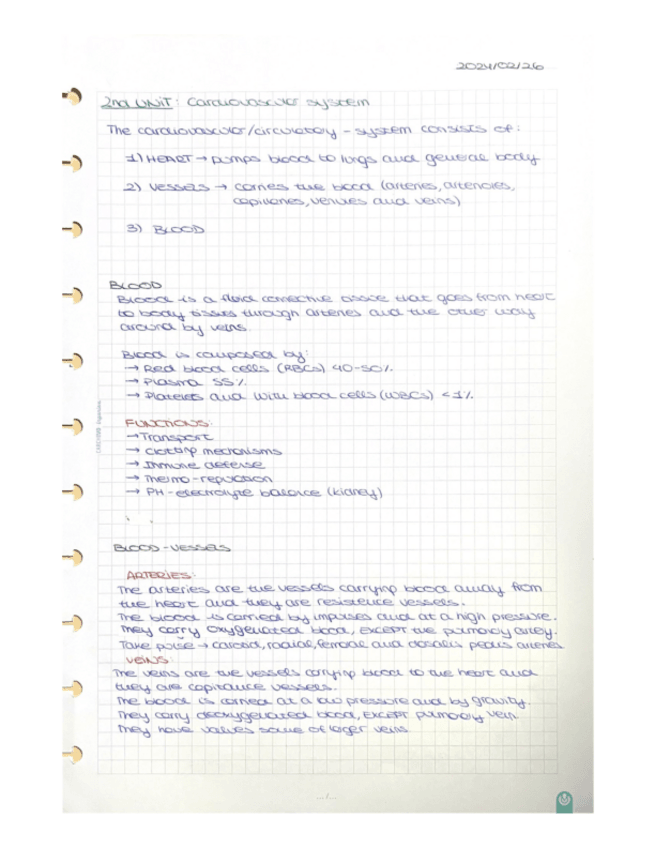 2024/02/26
2nd UNIT: Cardiovascular system
The cardiovascular/circulatory - system consists of:
1) HEART → pumps blood to lungs and general body
2) Vessels → carries the blood (arteries, arterioles,
capillaries, venules and veins)
3) BLOOD
BLOOD
Blood is a fluid connective tissue that goes from heart
to body tissues through arteries and the other way
around by veins.
Blood is composed by:
→ Red blood cells (RBCs) 40-50%
→ Plasma 55%
→ Platelets and with blood cells (WBCs) <1%
FUNCTIONS:
→ Transport
→ Clotting mechanisms
→ Immune defense
→ Thermo-regulation
→ PH-electrolyte balance (kidney)
BLOOD-VESSELS
ARTERIES:
The arteries are the vessels carrying blood away from
the heart and they are resistence vessels.
The blood is carried by impulses and at a high pressure.
They carry oxygenated blood, except the pulmonary artery.
Take pulse → carotid, radial, femoral and dorsalis pedis arteries
VEINS:
The veins are the vessels carrying blood to the heart and
they are capitance vessels.
The blood is carried at a low pressure and by gravity.
They carry deoxygenated blood, except pulmonary vein.
They have valves some of larger veins.